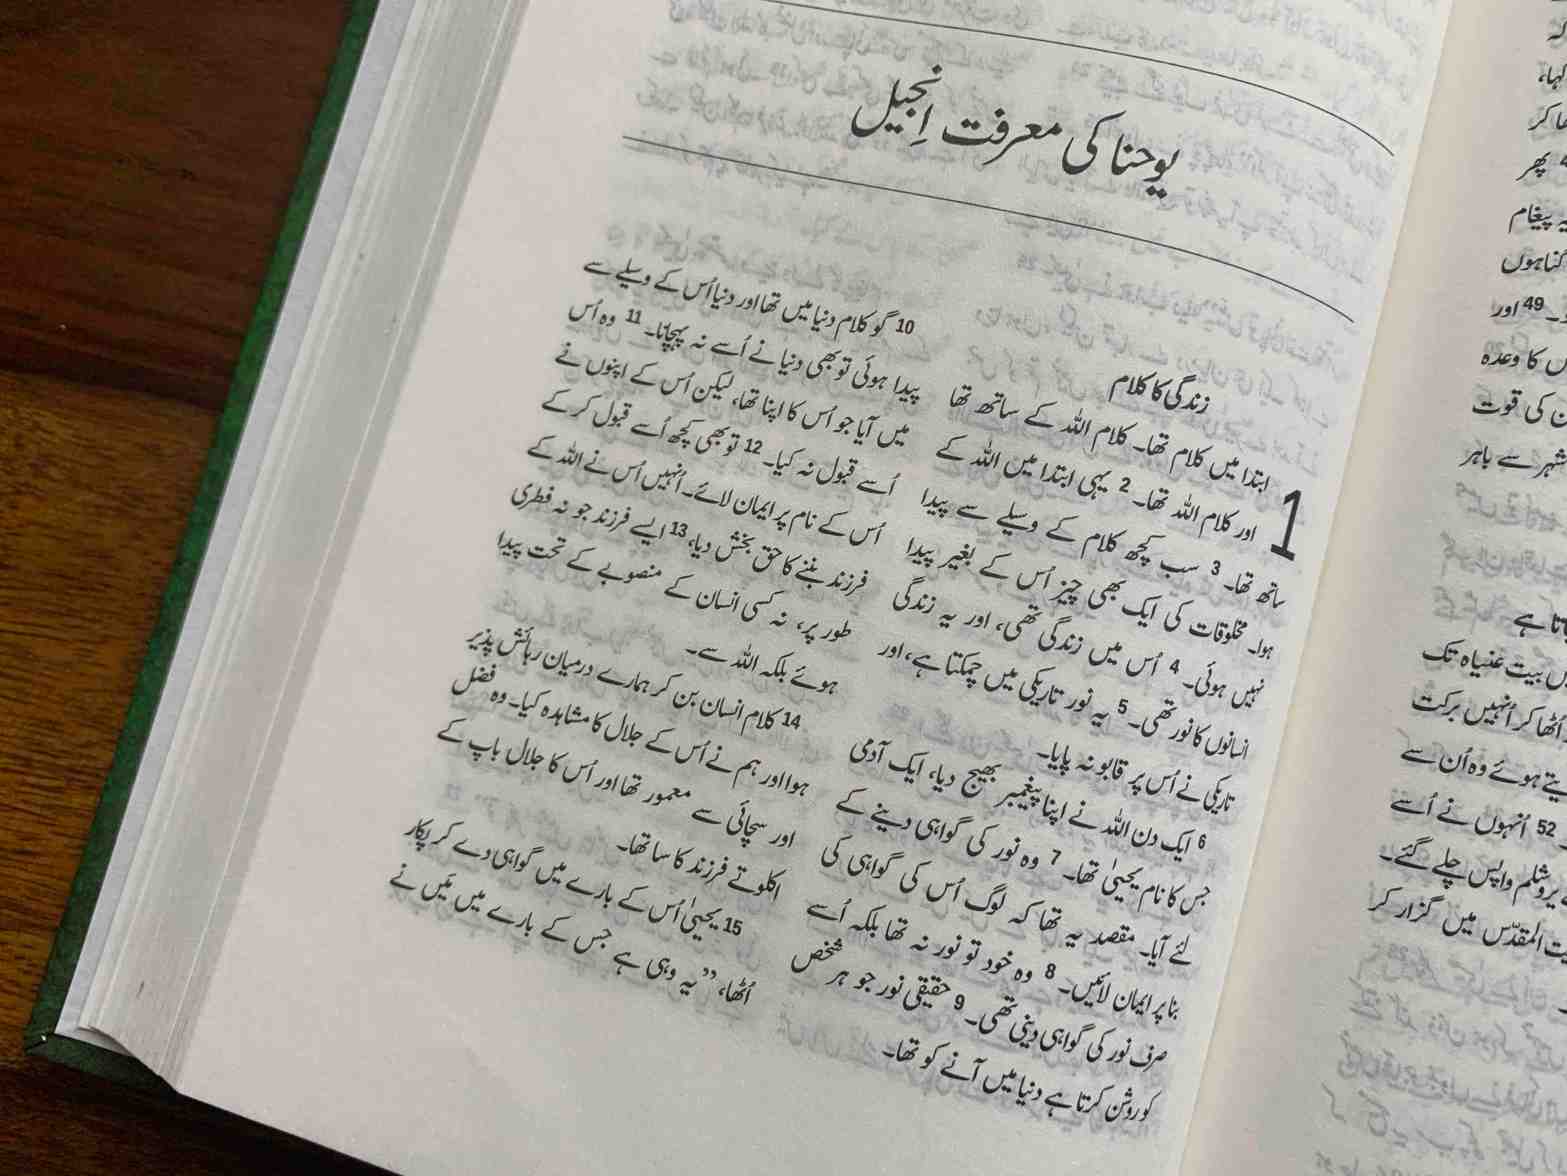 یوحنا کی معرفت اِنجیل
زندگی کا کلام
1
ابتدا میں کلام تھا۔ کلام اللہ کے ساتھ تھا
اور کلام اللہ تھا۔ 2 یہی ابتدا میں اللہ کے
ساتھ تھا۔ 3 سب کچھ کلام کے وسیلے سے پیدا
ہوا۔ مخلوقات کی ایک بھی چیز اُس کے بغیر پیدا
نہیں ہوئی۔ 4 اُس میں زندگی تھی، اور یہ زندگی
انسانوں کا نور تھی۔ 5 یہ نور تاریکی میں چمکتا ہے، اور
تاریکی نے اُس پر قابو نہ پایا۔
6 ایک دن اللہ نے اپنا پیغمبر بھیج دیا، ایک آدمی
جس کا نام یحییٰ تھا۔ 7 وہ نور کی گواہی دینے کے
لئے آیا۔ مقصد یہ تھا کہ لوگ اُس کی گواہی کی
بنا پر ایمان لائیں۔ 8 وہ خود تو نور نہ تھا بلکہ اُسے
صرف نور کی گواہی دینی تھی۔ 9 حقیقی نور جو ہر شخص
کو روشن کرتا ہے دنیا میں آنے کو تھا۔
10 گو کلام دنیا میں تھا اور دنیا اُس کے وسیلے سے
پیدا ہوئی تو بھی دنیا نے اُسے نہ پہچانا۔ 11 وہ اُس
میں آیا جو اُس کا اپنا تھا، لیکن اُس کے اپنوں نے
اُسے قبول نہ کیا۔ 12 تو بھی کچھ اُسے قبول کر کے
اُس کے نام پر ایمان لائے۔ اُنہیں اُس نے اللہ کے
فرزند بننے کا حق بخش دیا، 13 ایسے فرزند جو نہ فطری
طور پر، نہ کسی انسان کے منصوبے کے تحت پیدا
ہوئے بلکہ اللہ سے۔
14 کلام انسان بن کر ہمارے درمیان رہائش پذیر
ہوا اور ہم نے اُس کے جلال کا مشاہدہ کیا۔ وہ فضل
اور سچائی سے معمور تھا اور اُس کا جلال باپ کے
اکلوتے فرزند کا سا تھا۔
15 یحییٰ اُس کے بارے میں گواہی دے کر پکار
اُٹھا، ”یہ وہی ہے جس کے بارے میں مَیں نے
پھر
یہ پیغام
گناہوں
49 اور
کا وعدہ
کی قوت
شہر سے باہر
بیت عنیاہ تک
اُٹھا کر اُنہیں برکت
ہوئے وہ اُن سے
52 اُنہوں نے اُسے
یروشلم واپس چلے گئے۔
بیت المقدّس میں گزار کر